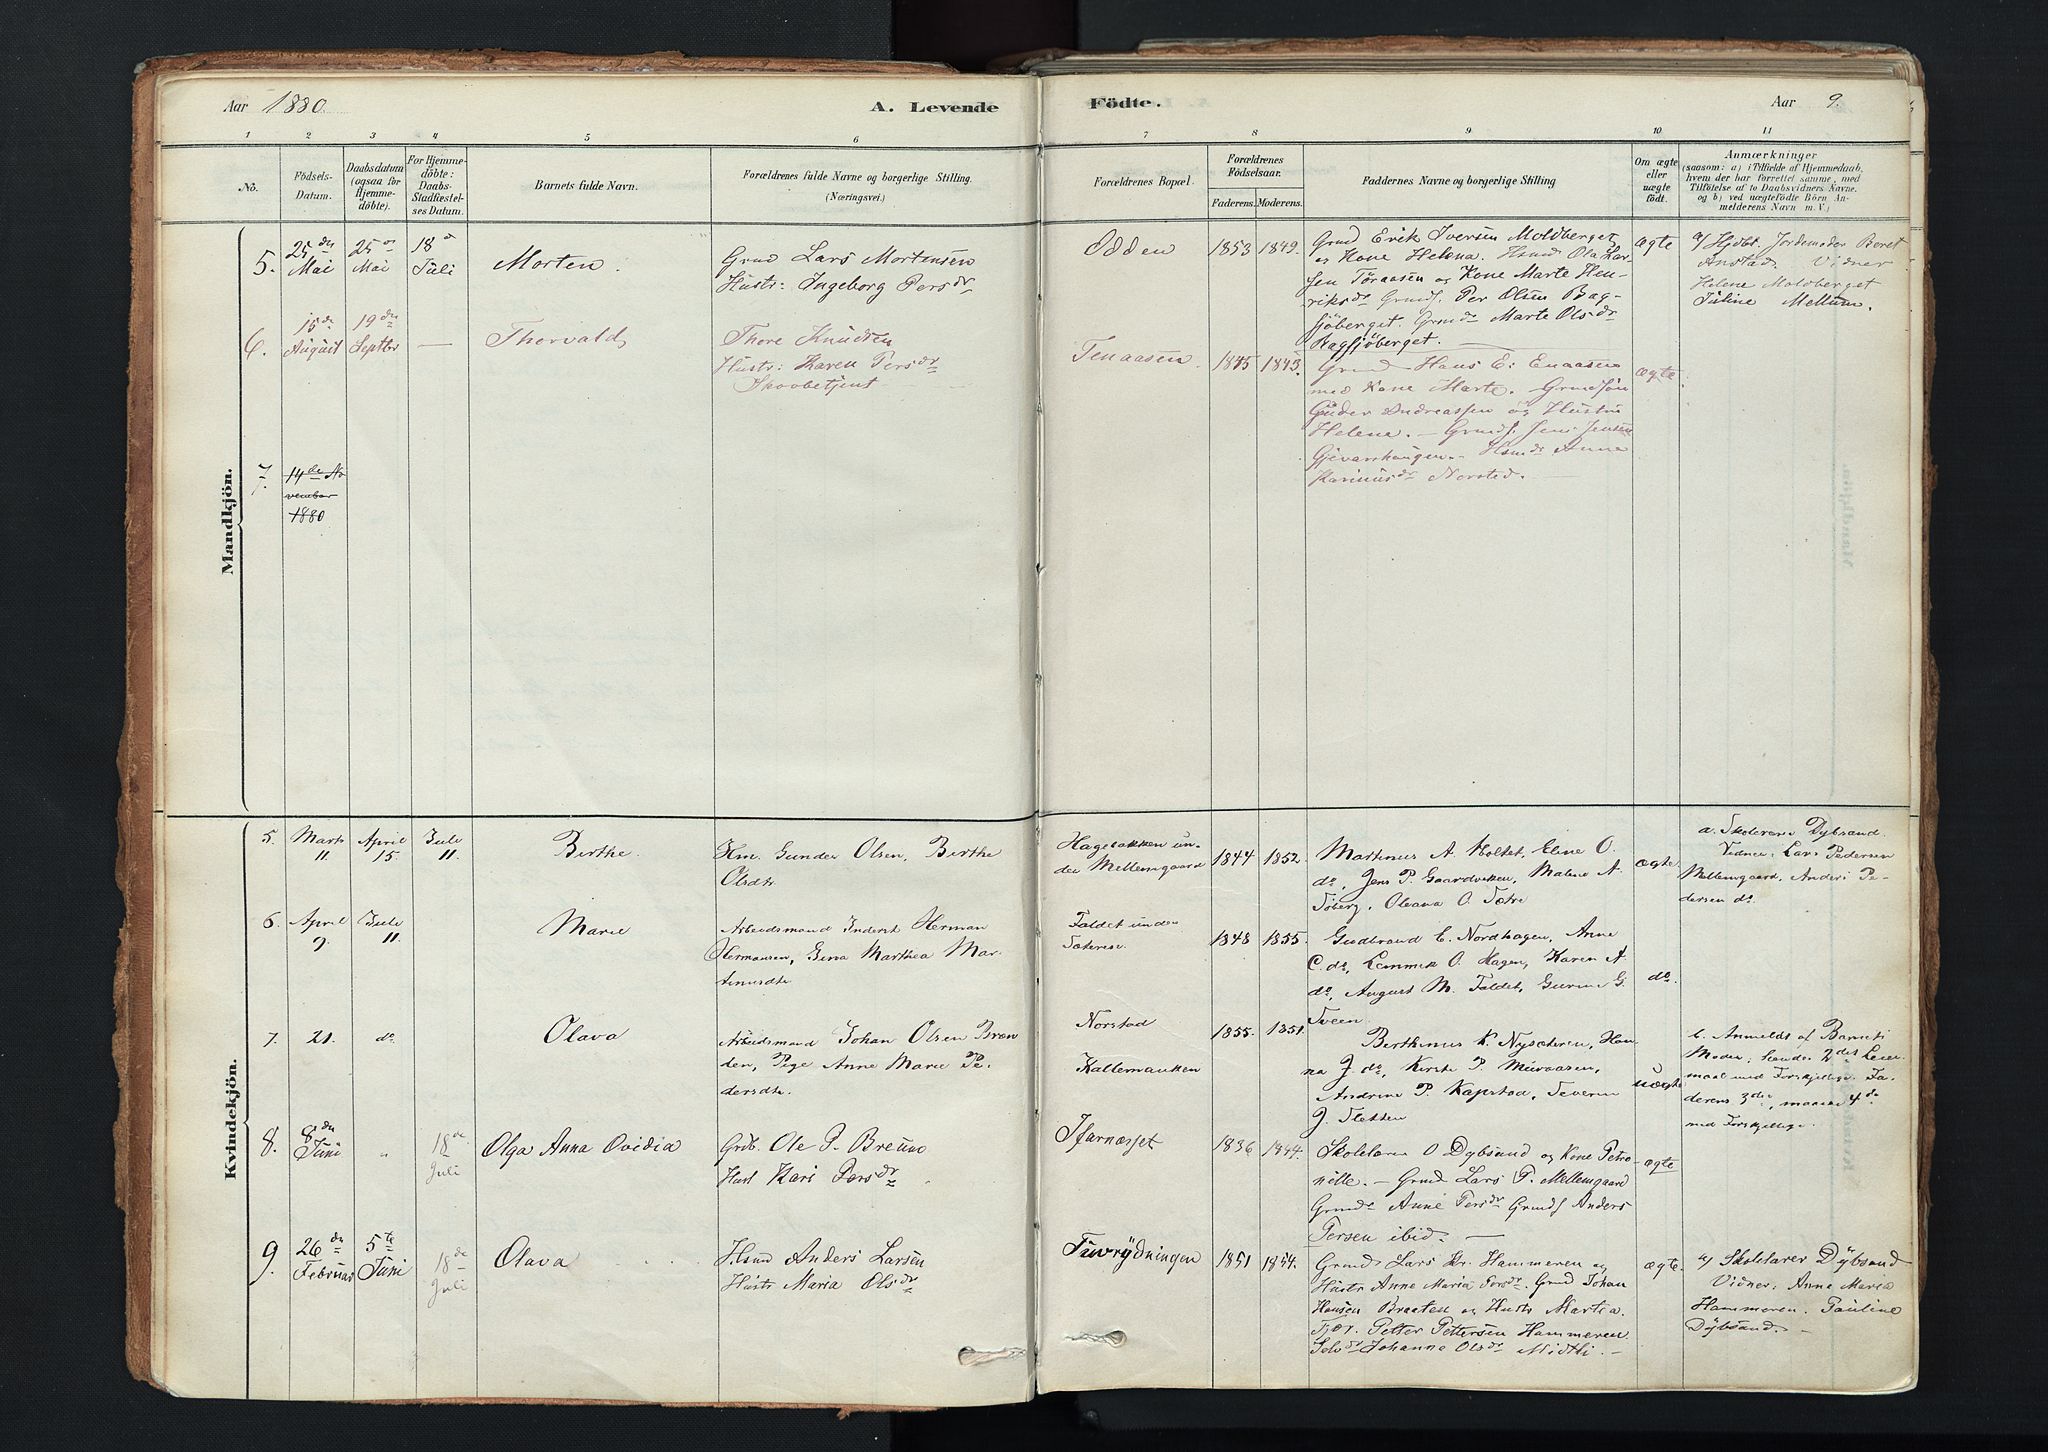 Aar 1880.
A. Levende
Födte.
Aar 9.
1 2 3 4 5 6 7 8 9 10 11
No.
Födsels-
Datum.
Daabsdatum
(ogsaa for
Hjemme-
döbte).
For Hjemme-
döbte:
Daabs-
Stadfæstel-
ses Datum.
Barnets fulde Navn.
Forældrenes fulde Navne og borgerlige Stilling.
(Næringsvei.)
Forældrenes Bopæl.
Forældrenes
Födselsaar.
Faderens. Moderens.
Faddernes Navne og borgerlige Stilling
Om ægte
eller
uægte
födt.
Anmærkninger
(saasom: a) i Tilfælde af Hjemmedaab,
hvem der har forrettet samme, med
Tilföielse af to Daabsvidners Navne.
og b) ved uægtefödte Börn An-
melderens Navn m. V.)
Mandkjön.
5.
25 de
Mai
25 de
Mai
18 d
Juli
Morten.
Grmd Lars Mortensen
Hustr: Ingeborg Persdr
Odden
1853
1849.
Grmd Erik Iversen Moldberget
og Kone Helena. Hsmd Ola Lar-
sen Töraasen og Kone Marte Hen-
riksdr Grmds. Per Olsen Bag-
sjöberget. Grmds Marte Olsdr
Bagsjöberget.
ægte
a/ Hjdbt. Jordemoder Beret
Anstad. Vidner
Helene Moldberget
Juline Mellum.
6.
15 de
August
19 de
Septbr
—
Thorvald
Thore Knudsen
Hustr: Karen Persdr
Skovbetjent
Tenaasen
1835
1843.
Grmd Hans E. Enaasen
med Kone Marte. Grmdsön
Guder Andreassen og Hustru
Helene. — Grmds. Jens Jensen
Gjevarshaugen. - Hsmds Anne
Karinusdr Norsted. —
ægte
7.
14 de No
vember
1880
Kvindekjön.
5.
Marts
11.
April
15.
Juli
11.
Birthe.
Hm. Gunder Olsen, Birthe
Olsdtr.
Hagebakken un-
der Mellemgaard
1844
1852.
Martinus A. Moltet, Eline O.
do, Jens P. Gaardvikken, Malene A.
Töberg, Oleana O. Sætre
ægte.
a. Skolelærer Dybsand.
Vidner: Lars Pedersen
Mellemgaard, Anders Pe-
dersen do
6.
April
9.
Juli
11.
Marie
Arbeidsmand Inderst Herman
Hermansen, Gina Marthea Mar-
tinusdtr.
Faldet under
Sæterese.
1848
1855.
Gudbrand E. Nordhagen, Anne
C. do, Lemmik O. Hagen, Karen A.
do, August M. Faldet, Gurine G.
Sveen.
do.
7.
21.
do
Olava
Arbeidsmand Johan Olsen Bræn
den, Pige Anne Marie Pe-
dersdtr.
Norstad
Kallemankken
1855.
1851.
Berthinus K. Nysæteren, Han-
na J. do, Kirsti P. Müraasen,
Andrine P. Kapstad, Severin
J. Sletten
uægte
b. Anmeldt af Barnets
Moder; hendes 2det Leier-
maal med Forskjellige. Fa-
derens 3die, maaske 4de
med Forskjellige.
8.
8 de
Juni
"
18 de
Juli
Olga Anna Ovidia
Grb. Ole P. Breum
Hust Kari Persdr
Ifarnæsset
1836
1844.
Skolelærer O Dybsand og Kone Petro-
nille. — Grmd Lars P. Mellemgaard
Grmds Anne Persdr Grmds Anders
Persen ibid. —
ægte
9.
26 de
Februar
5 te
Juni
18 de
Juli
Olava
Hsmd Anders Larsen
Hustr Maria Olsdr
Tuvrydningen
1851
1854.
Grmd Lars Kr. Hammeren og
Hustr Anne Maria Persdr. Grmd Johan
Hansen Braaten og Hustr Martea.
Tjær. Petter Pettersen Hammeren.
Selvdr Johanne Olsdr Midtli. —
ægte.
a/ Skolelærer Dybsand
Vidner, Anne Maria
Hammeren. Pauline
Dybsand. —